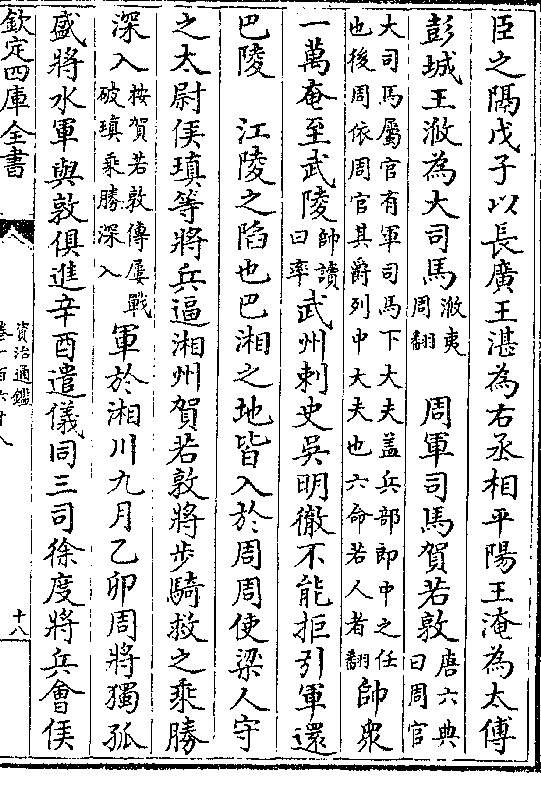 臣之隅戊子以長廣王湛為右丞相平陽王淹為太傅
彭城王浟為大司馬浟夷周翻 周軍司馬賀若敦唐六典曰周官
大司馬屬官有軍司馬下大夫盖兵部郎中之任
也後周依周官其爵列中大夫也六命若人者翻帥衆
一萬奄至武陵帥讀曰率武州刺史吳明徹不能拒引軍還
巴陵 江陵之陷也巴湘之地皆入於周周使梁人守
之太尉侯瑱等將兵逼湘州賀若敦將步騎救之乘勝
深入按賀若敦傳屢戰破瑱乘勝深入軍於湘川九月乙卯周將獨孤
盛將水軍與敦俱進辛酉遣儀同三司徐度將兵會侯
欽定四庫全書
資治通鑑
卷一百六十八
十八